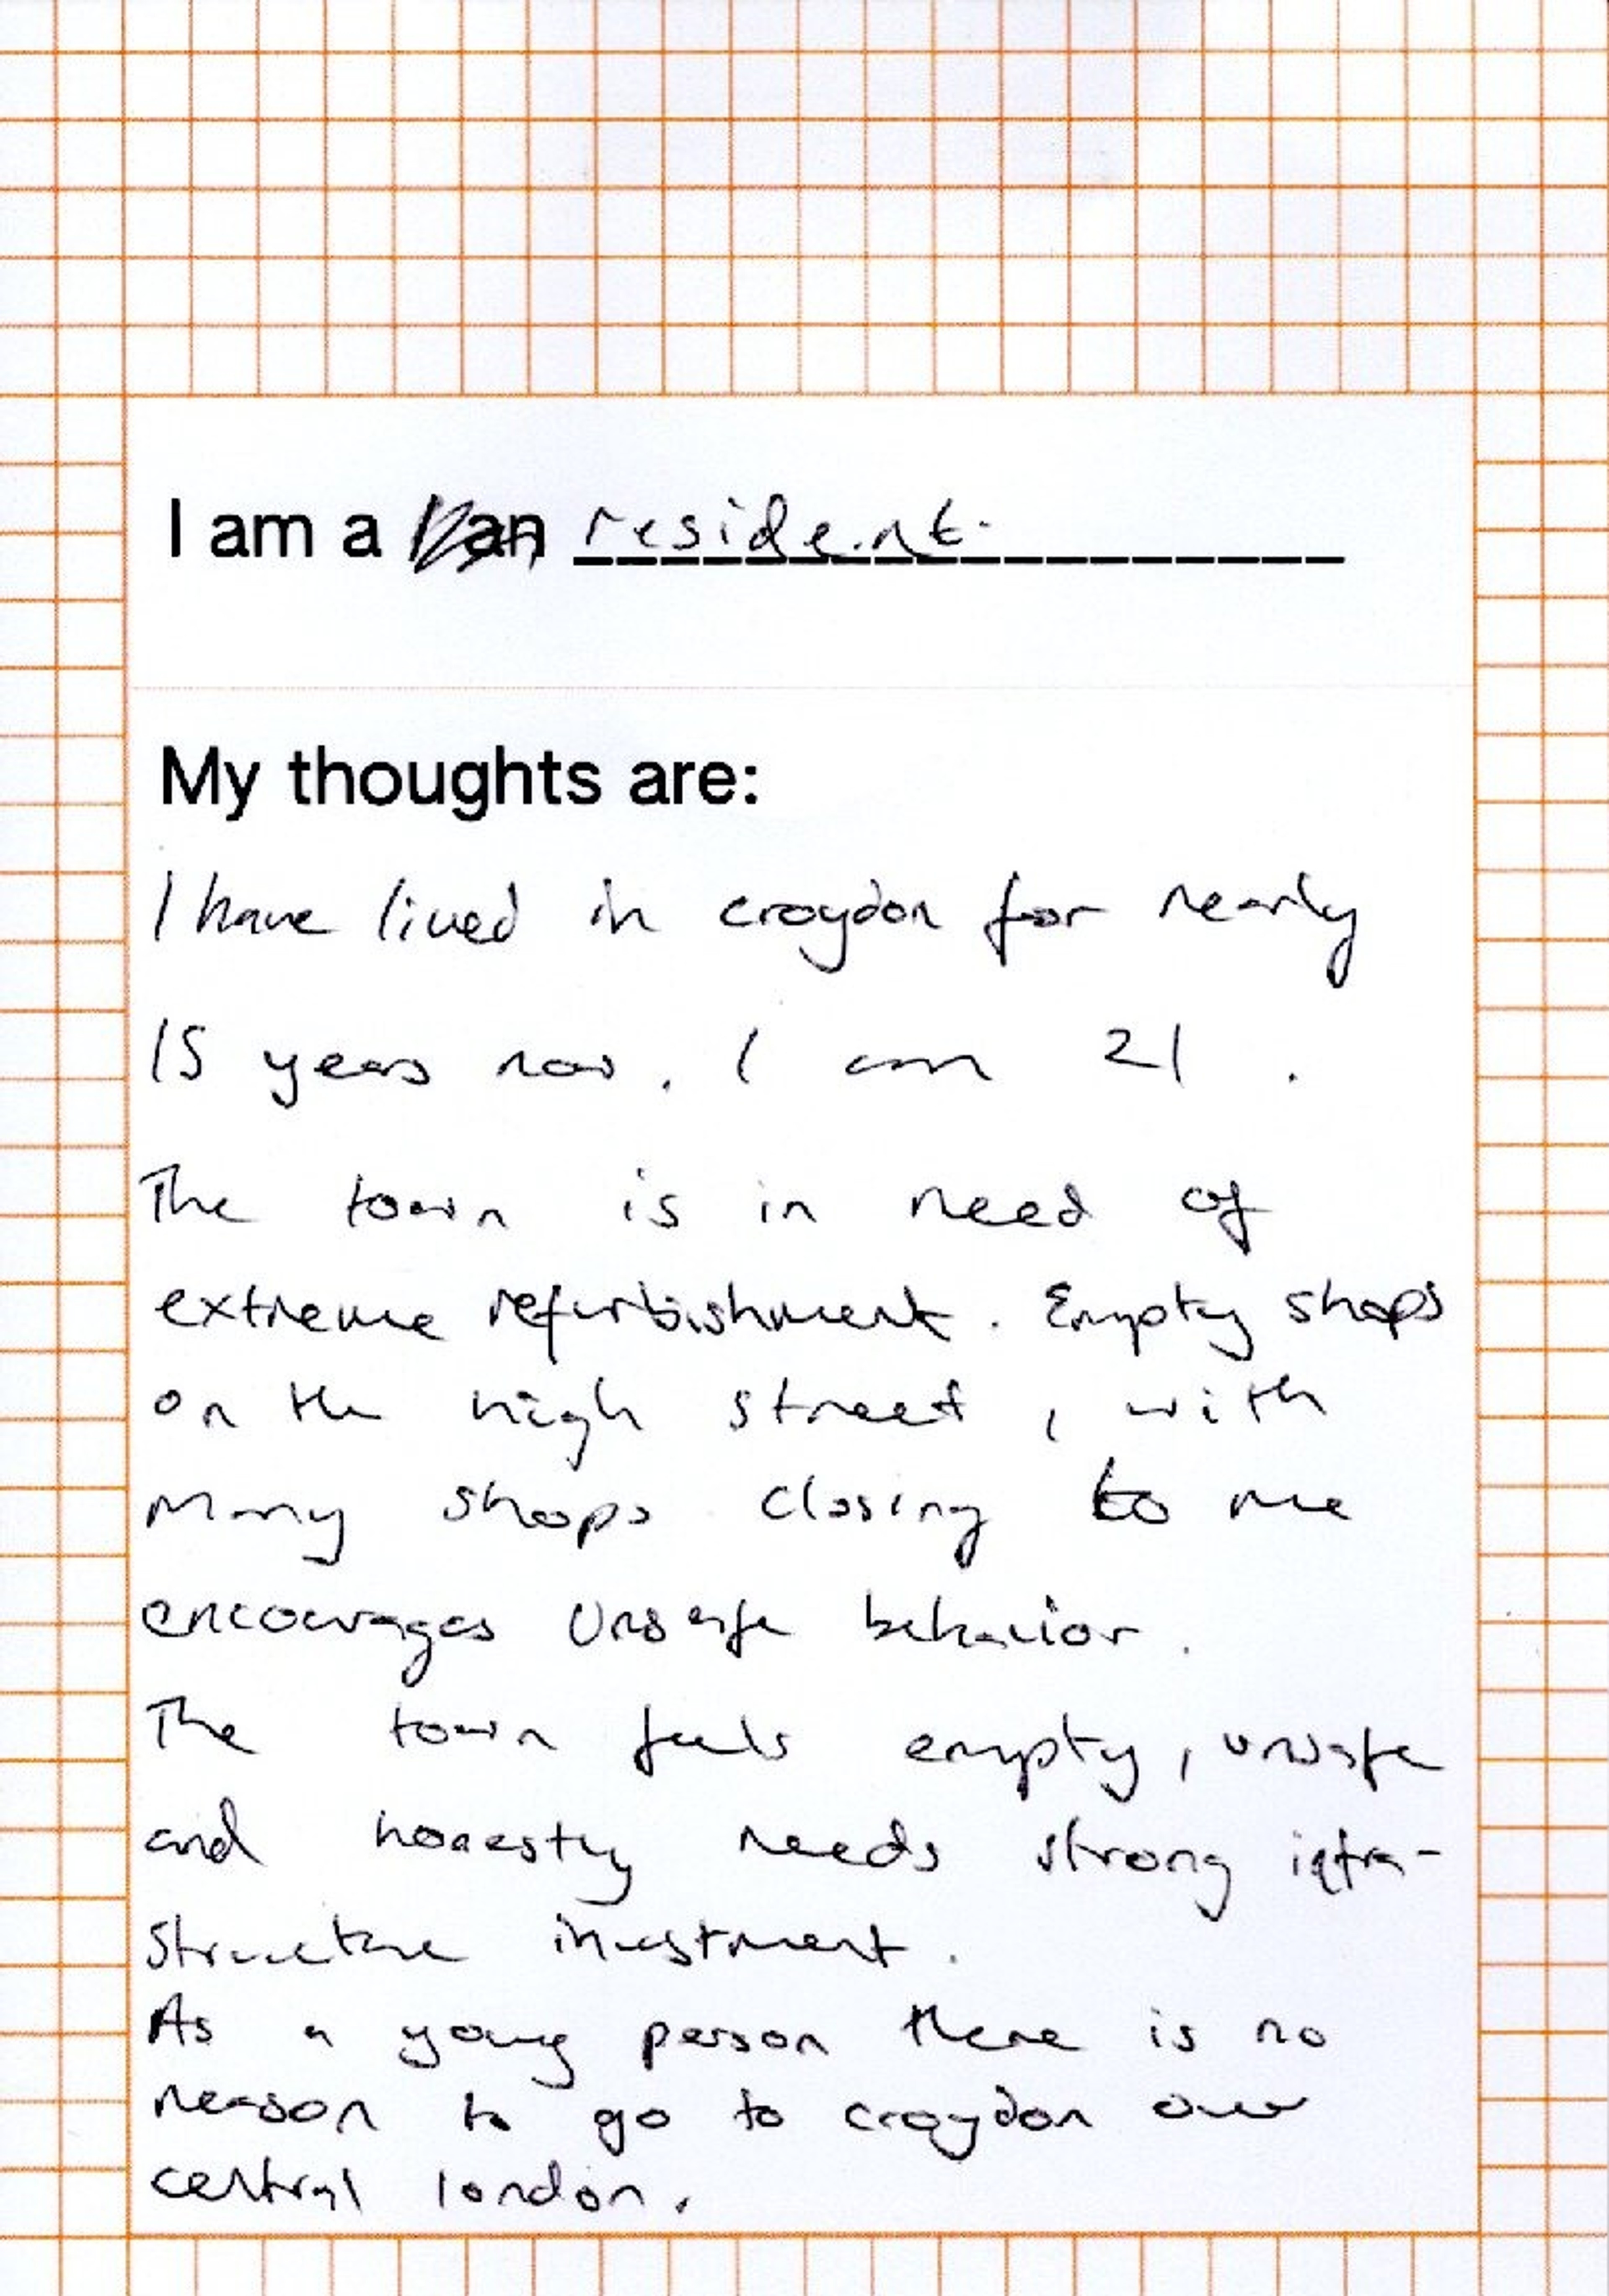 I am a / an resident.
My thoughts are:
I have lived in croydon for nearly
15 years now. I am 21 .
The town is in need of
extreme refurbishment. Empty shops
on the high street, with
many shops closing to me
encourages unsafe behavior.
The town feels empty, unsafe
and honestly needs strong infra-
structure investment.
As a young person there is no
reason to go to croydon over
central london.